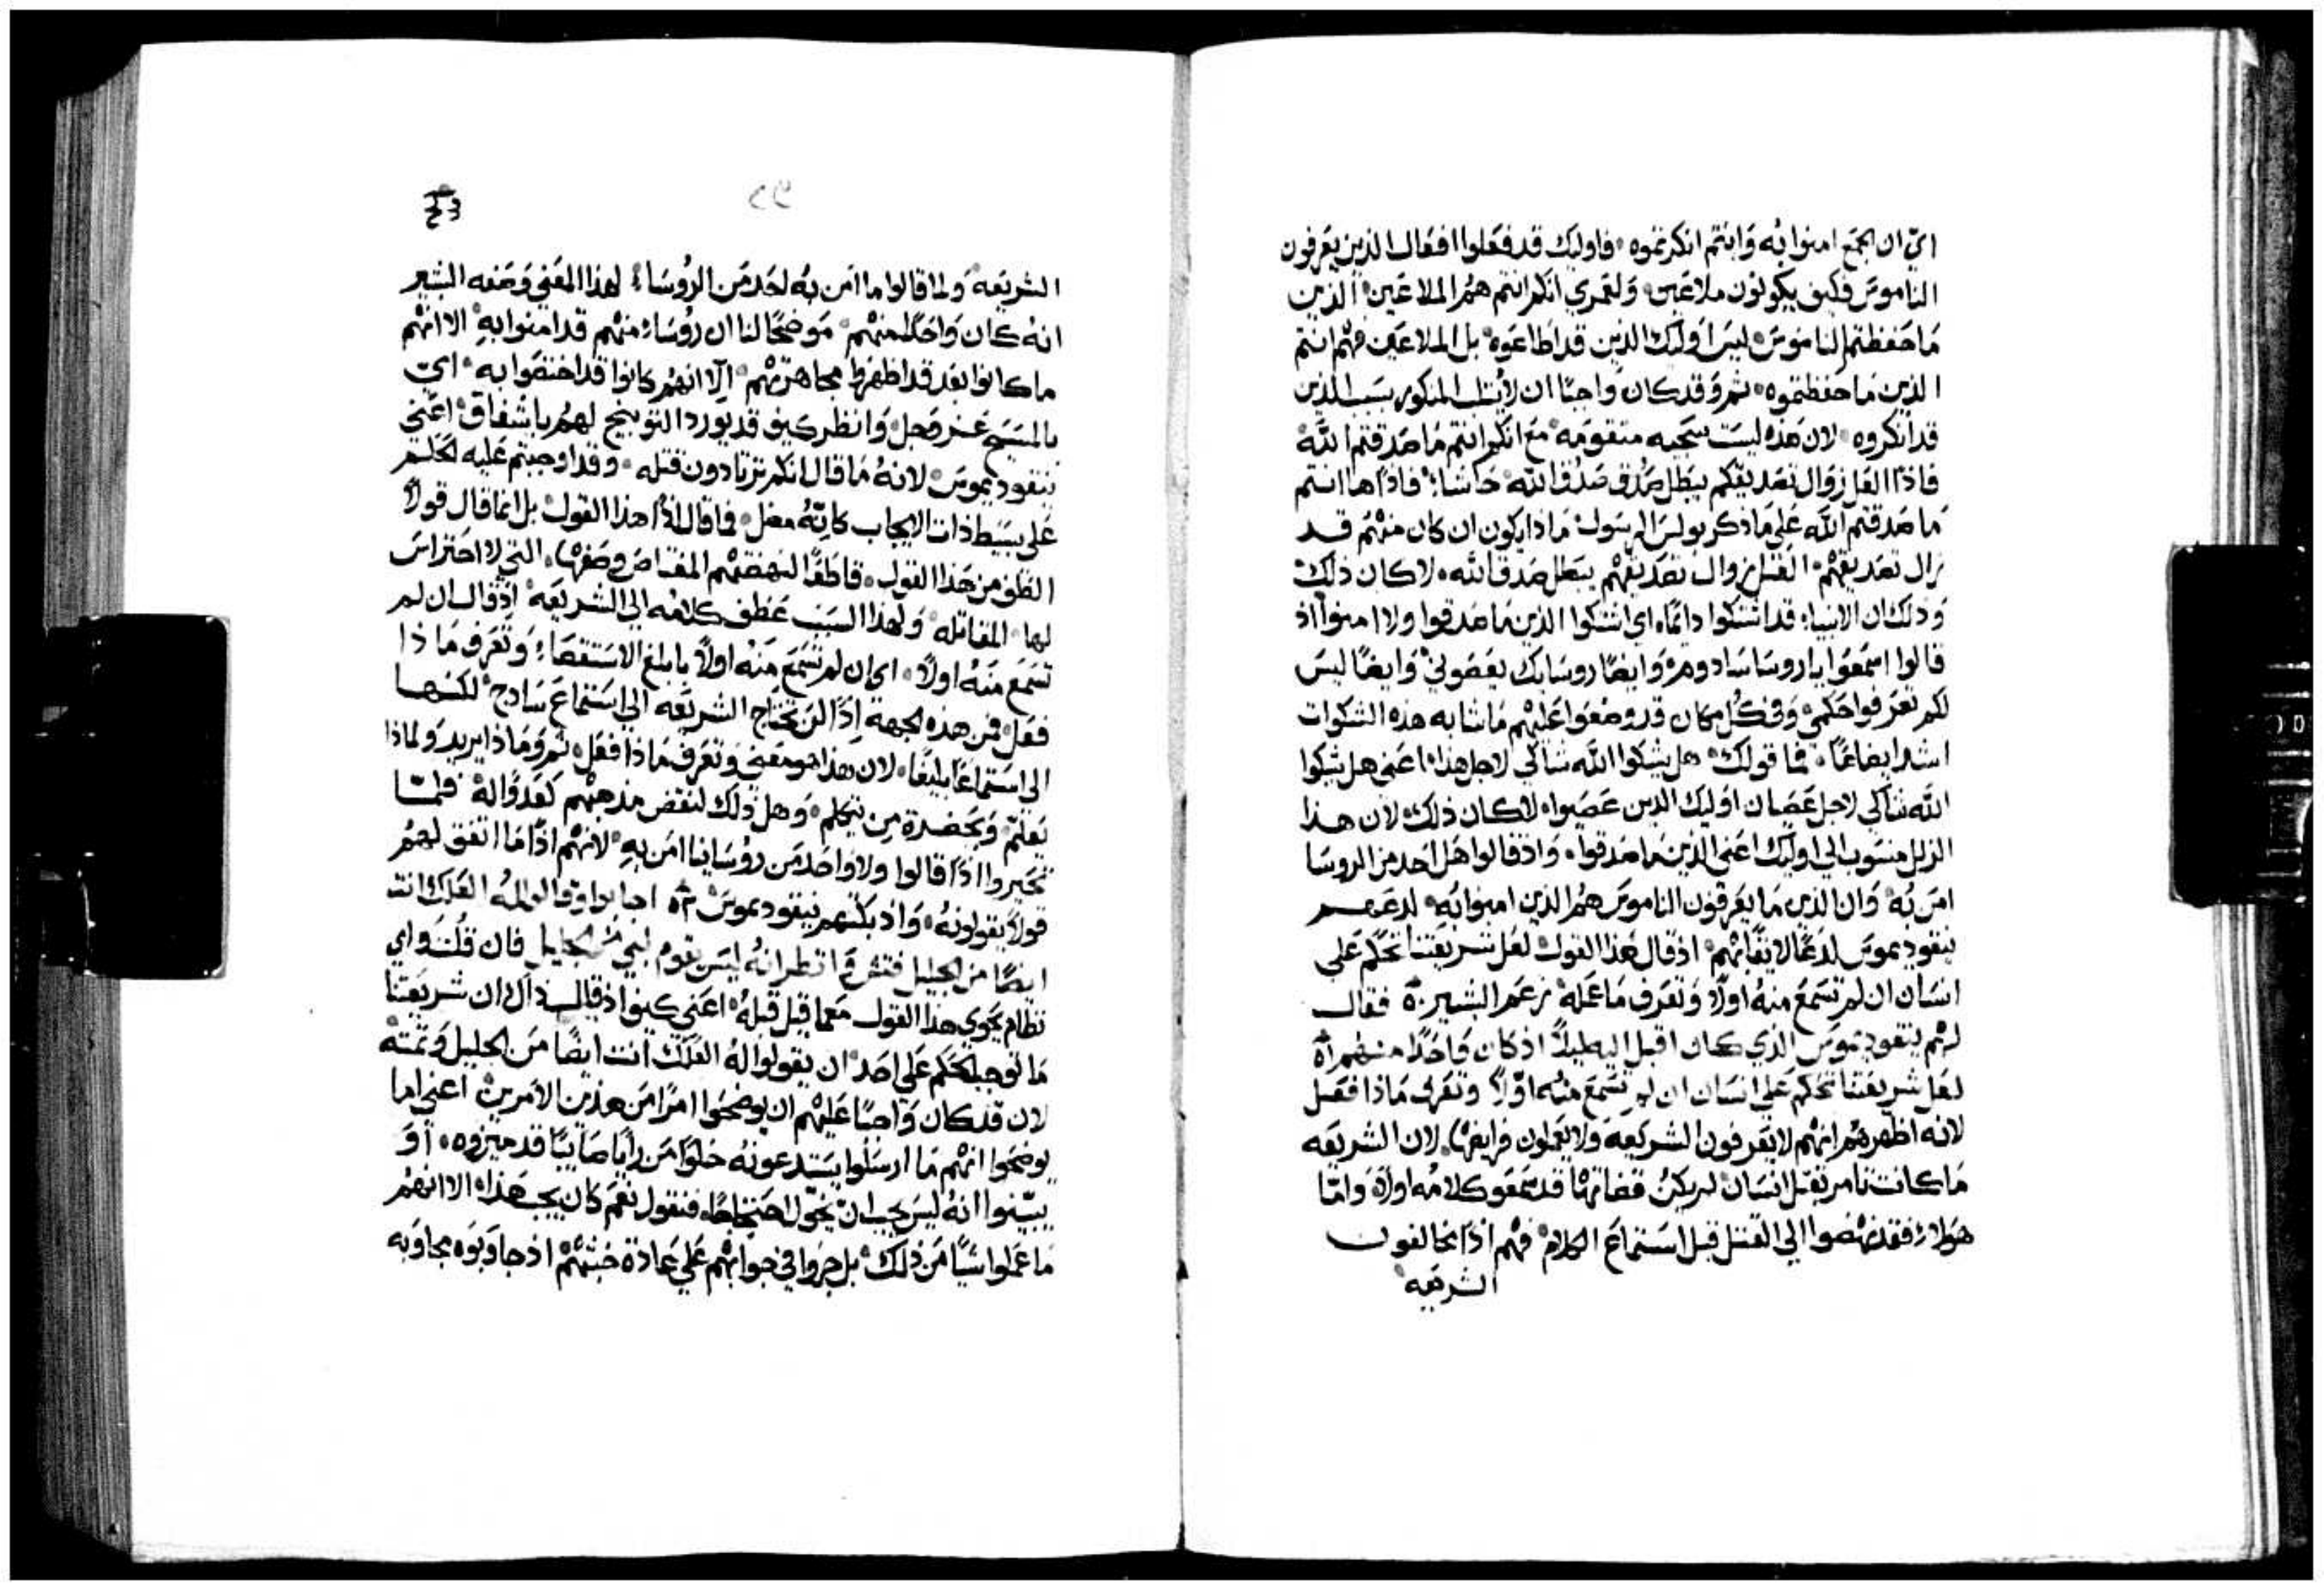 اي ان الجمع امنوا به وانتم انكرتموه فاوليك قد فعلوا افعال الذين يعرفون
الناموس فكيف يكونون ملاعين ولعمري انكم انتم هم الملاعين الذين
ما حفظتم الناموس ليس اوليك الذين قد اطاعوه بل الملاعين فهم انتم
الذين ما حفظتموه ثم وقد كان واجبًا ان لا يثلب المذكور بسبب الذين
قد انكروه لان هذه ليست سجيه متقومه مع انكم انتم ما صدقتم الله
فاذًا العل زوال تصديقكم يبطل صدق الله حاشا فاذًا ها انتم
ما صدقتم الله على ما ذكر بولس الرسول ماذا يكون ان كان منهم قد
زال تصديقهم العل زوال تصديقهم يبطل صدق الله لا كان ذلك
وذلك ان الانبياء قد اشتكوا دائمًا اي اشتكوا الذين ما صدقوا ولا امنوا اذ
قالوا اسمعوا يا روسا سادوم وايضًا روساك يعصوني وايضًا ليس
لكم تعرفوا حكمي وفي كل مكان قد وضعوا عليهم ما شابه هذه الشكوات
اشد ايضاعًا فما قولك هل يشكوا الله شاكي لاجل هذا اعني هل يشكوا
الله شاكي لاجل عصيان اوليك الذين عصيوا لا كان ذلك لان هذا
الزلل منسوب الي اوليك اعني الذين ما صدقوا واذ قالوا هل احد من الروسا
امن به وان الذين ما يعرفون الناموس هم الذين امنوا به لدعهم
نيقوديموس لدعًا لايقًا بهم اذ قال هذا القول لعل شريعتنا تحكم على
انسان ان لم تسمع منه اولًا وتعرف ما عمله زعم البشير فقال
لهم نيقوديموس الذي كان اقبل اليه ليلًا اذ كان واحدًا منهم
لعل شريعتنا تحكم على انسان ان لم تسمع منه اولًا وتعرف ماذا فعل
لانه اظهرهم انهم لا يعرفون الشريعة ولا يعملون فرايضها لان الشريعه
ما كانت تامر بقتل انسان لم يكن قضاتها قد سمعوا كلامه اولا واما
هولاء فقد نهضوا الي القتل قبل استماع الكلام فهم اذًا مخالفون
الشريعه
الشريعه ولما قالوا ما امن به احد من الروساء لهذا المعني وصفه البشير
انه كان واحدًا منهم موضحًا لنا ان روساء منهم قد امنوا به الا انهم
ما كانوا بعد قد اظهروا مجاهرتهم الا انهم كانوا قد اختصوا به اي
بالمسيح عز وجل وانظر كيف قد يورد التوبيخ لهم باشفاق اعني
نيقوديموس لانه ما قال انكم ترتادون قتله وقد اوجبتم عليه الحكم
على بسيط ذات الايجاب كانه مضل فما قال اذًا هذا القول بل انما قال قولًا
الطف من هذا القول قاطعًا لنهضتهم المقتاص وصفها التي لا احتراس
لها المقاتله ولهذا السبب عطف كلامه الي الشريعة اذ قال ان لم
تسمع منه اولًا اي ان لم تسمع منه اولًا بابلغ الاستقصاء وتعرف ماذا
فعل فمن هذه الجهة اذًا لن تحتاج الشريعه الي استماع سادج لكنها
الي استماعًا بليغًا لان هذا هو معني وتعرف ماذا فعل ثم وماذا يريد ولماذا
يعلم وبحضرة من يتكلم وهل ذلك لنقض مذهبهم كعدو له فلما
تحيروا اذًا قالوا ولا واحد من روساينا امن به لانهم اذًا ما اتفق لهم
قولًا يقولونه واذ بكتهم نيقوديموس اجابوا وقالوا له العلك انت
ايضًا من الجليل فتش وانظر انه ليس يقوم نبي من الجليل فان قلت واي
نظام يحوي هذا القول معما قبل قبله اعني كيف اذ قال ذاك ان شريعتنا
ما توجب الحكم على احد ان يقولوا له العلك انت ايضًا من الجليل وتمته
لان قد كان واجبًا عليهم ان يوضحوا امرًا من هذين الامرين اعني اما
يوضحوا انهم ما ارسلوا يستدعونه خلوًا من رايًا صايبًا قد ميزوه او
يبينوا انه ليس يجب ان يخول احتجاجًا فنقول نعم كان يجب هذا الا انهم
ما عملوا شيًا من ذلك بل جروا في جوابهم على عادة خبثهم اذ جاوبوه مجاوبه